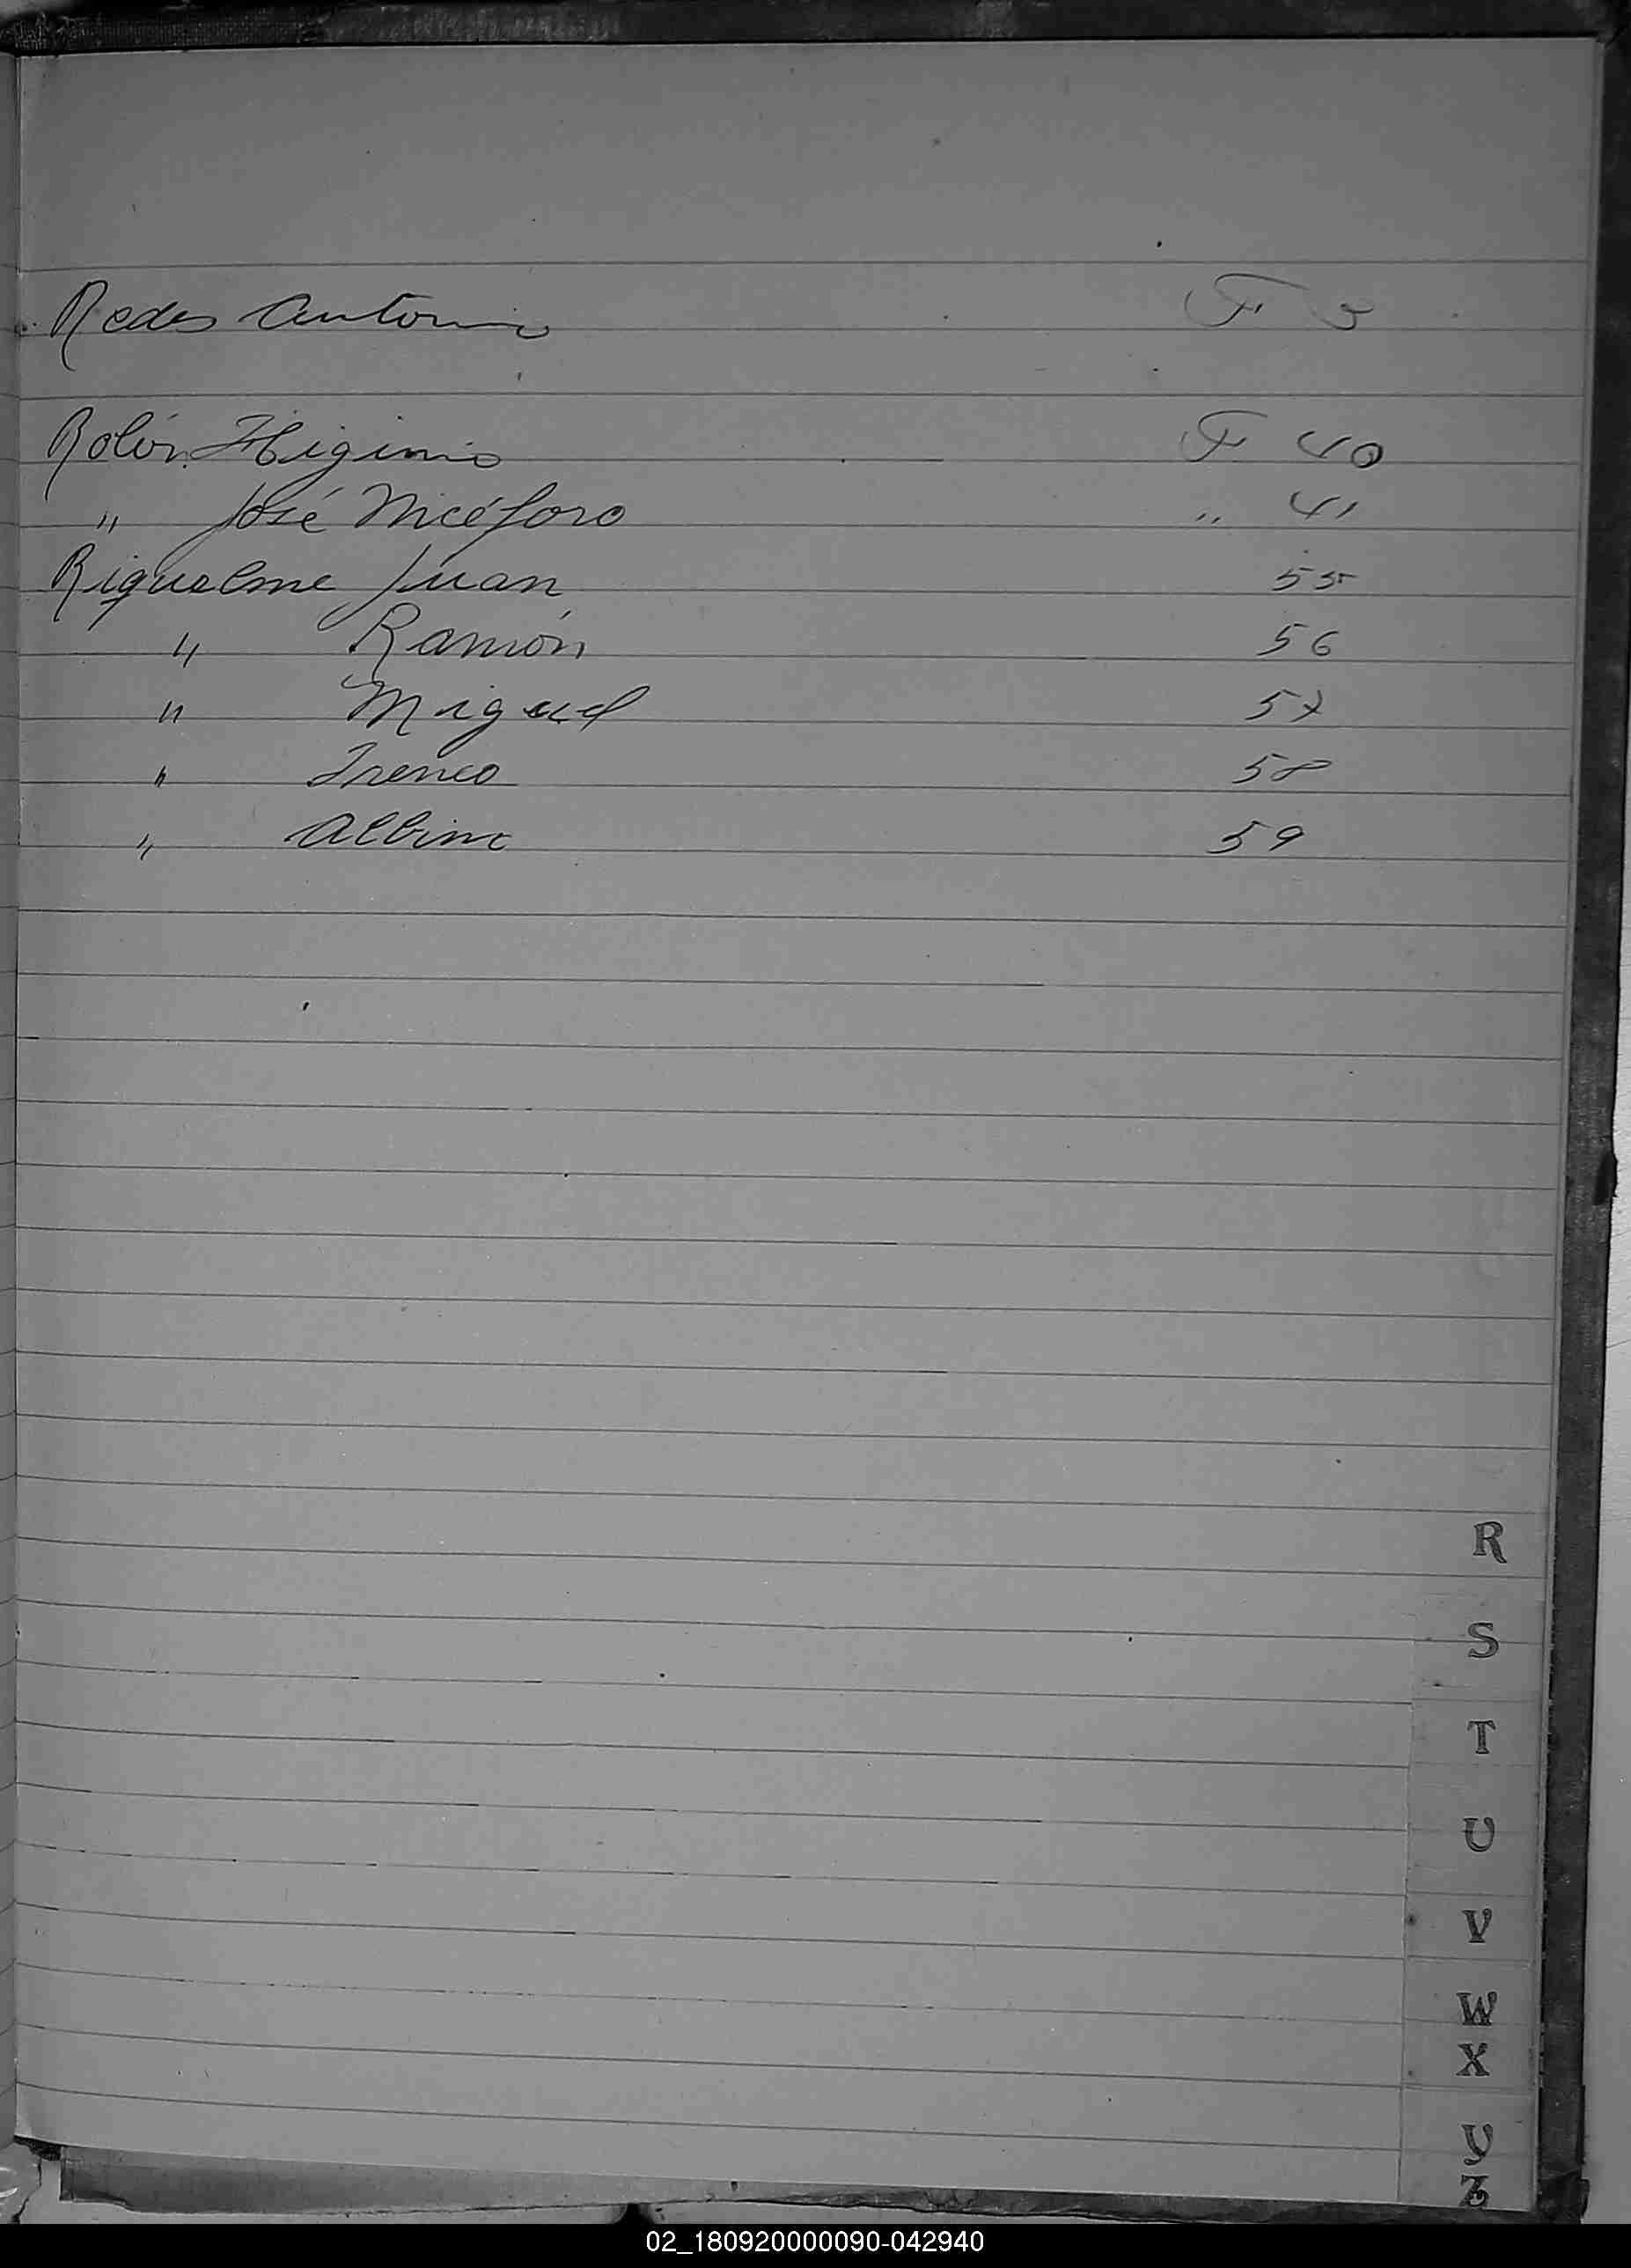 Redes Antonio F 5
Rolón Higinio F 40
" José Nicéforo " 41
Riquelme Juan 55
" Ramón 56
" Miguel 57
" Ireneo 58
" Albino 59
R
S
T
U
V
W
X
Y
Z
02_180920000090-042940